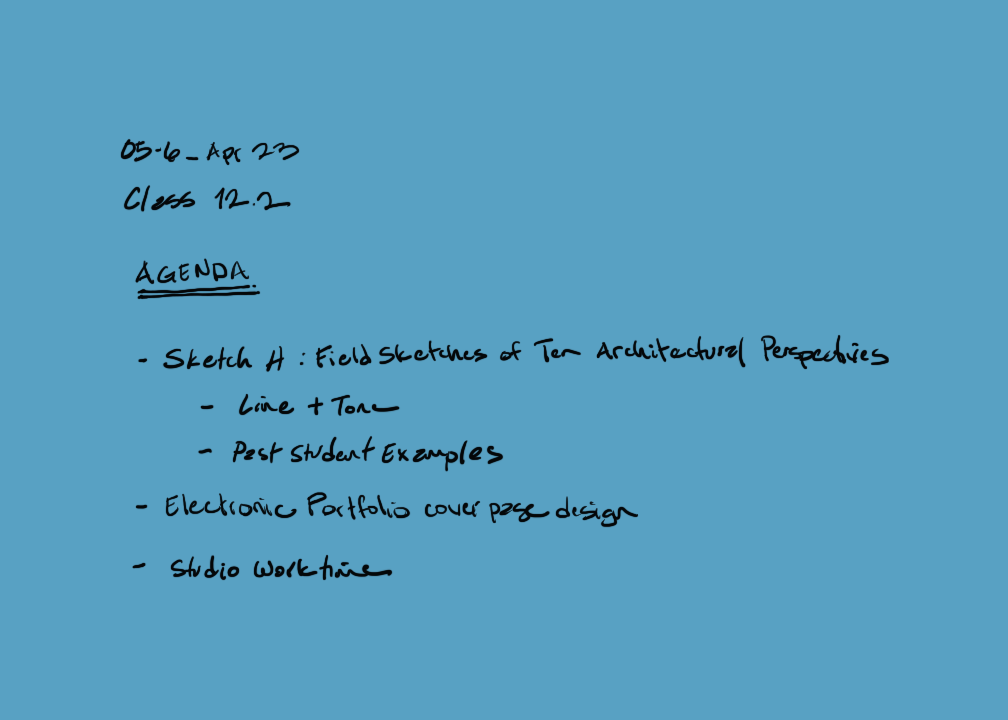 05-6_Apr 23
Class 12.2
AGENDA.
- Sketch H : Field Sketches of Ten Architectural Perspectives
- Line + Tone
- Past Student Examples
- Electronic Portfolio cover page design
- Studio Worktime